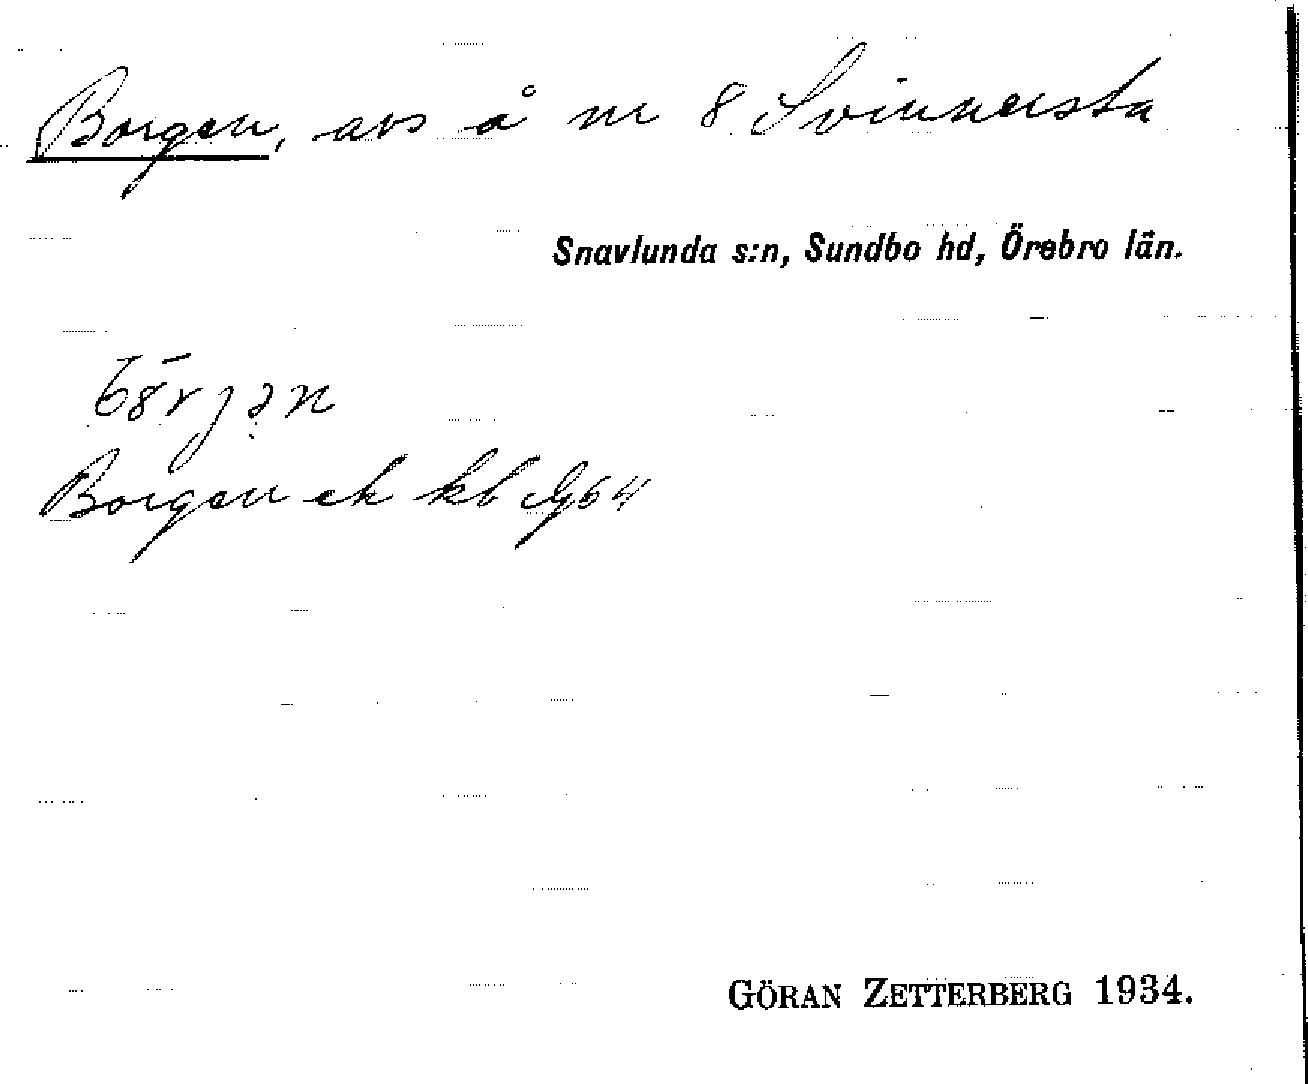 Borgen, avs å nr 8 Svinnersta
Snavlunda s:n, Sundbo hd, Örebro län.
Borgen ek kb
GÖRAN ZETTERBERG 1934.